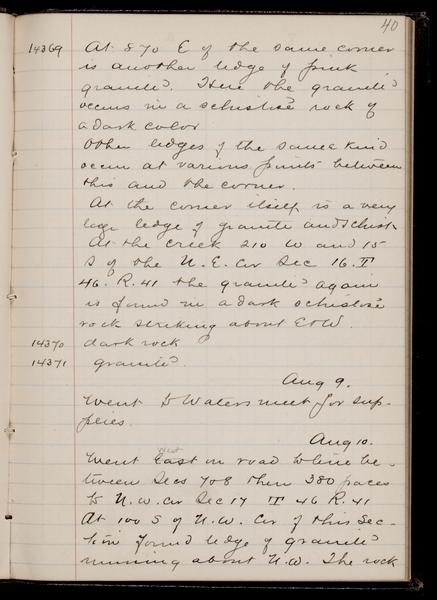 40
14369 At 870 E of the same corner
is another ledge of pink
granite. Here the granite
occurs in a schistose rock of
a dark color
Other ledges of the same kind
occur at various points between
this and the corner.
At the corner itself is a very
large ledge of granite and schist
At the creek 210 W and 15
S of the N.E. Cor Sec 16. T
46. R. 41 the granite again
is found in a dark schistose
rock striking about E & W.
14370 dark rock
14371 granite
Aug 9.
Went to Watersmeet for sup-
plies.
Aug 10.
West
Went East on road to line be-
tween Secs 7 & 8 then 380 paces
to N.W. Cor Sec 17 T 46 R. 41
At 100 S of N.W. Cor of this Sec-
tion found ledge of granite
running about N.W. The rock